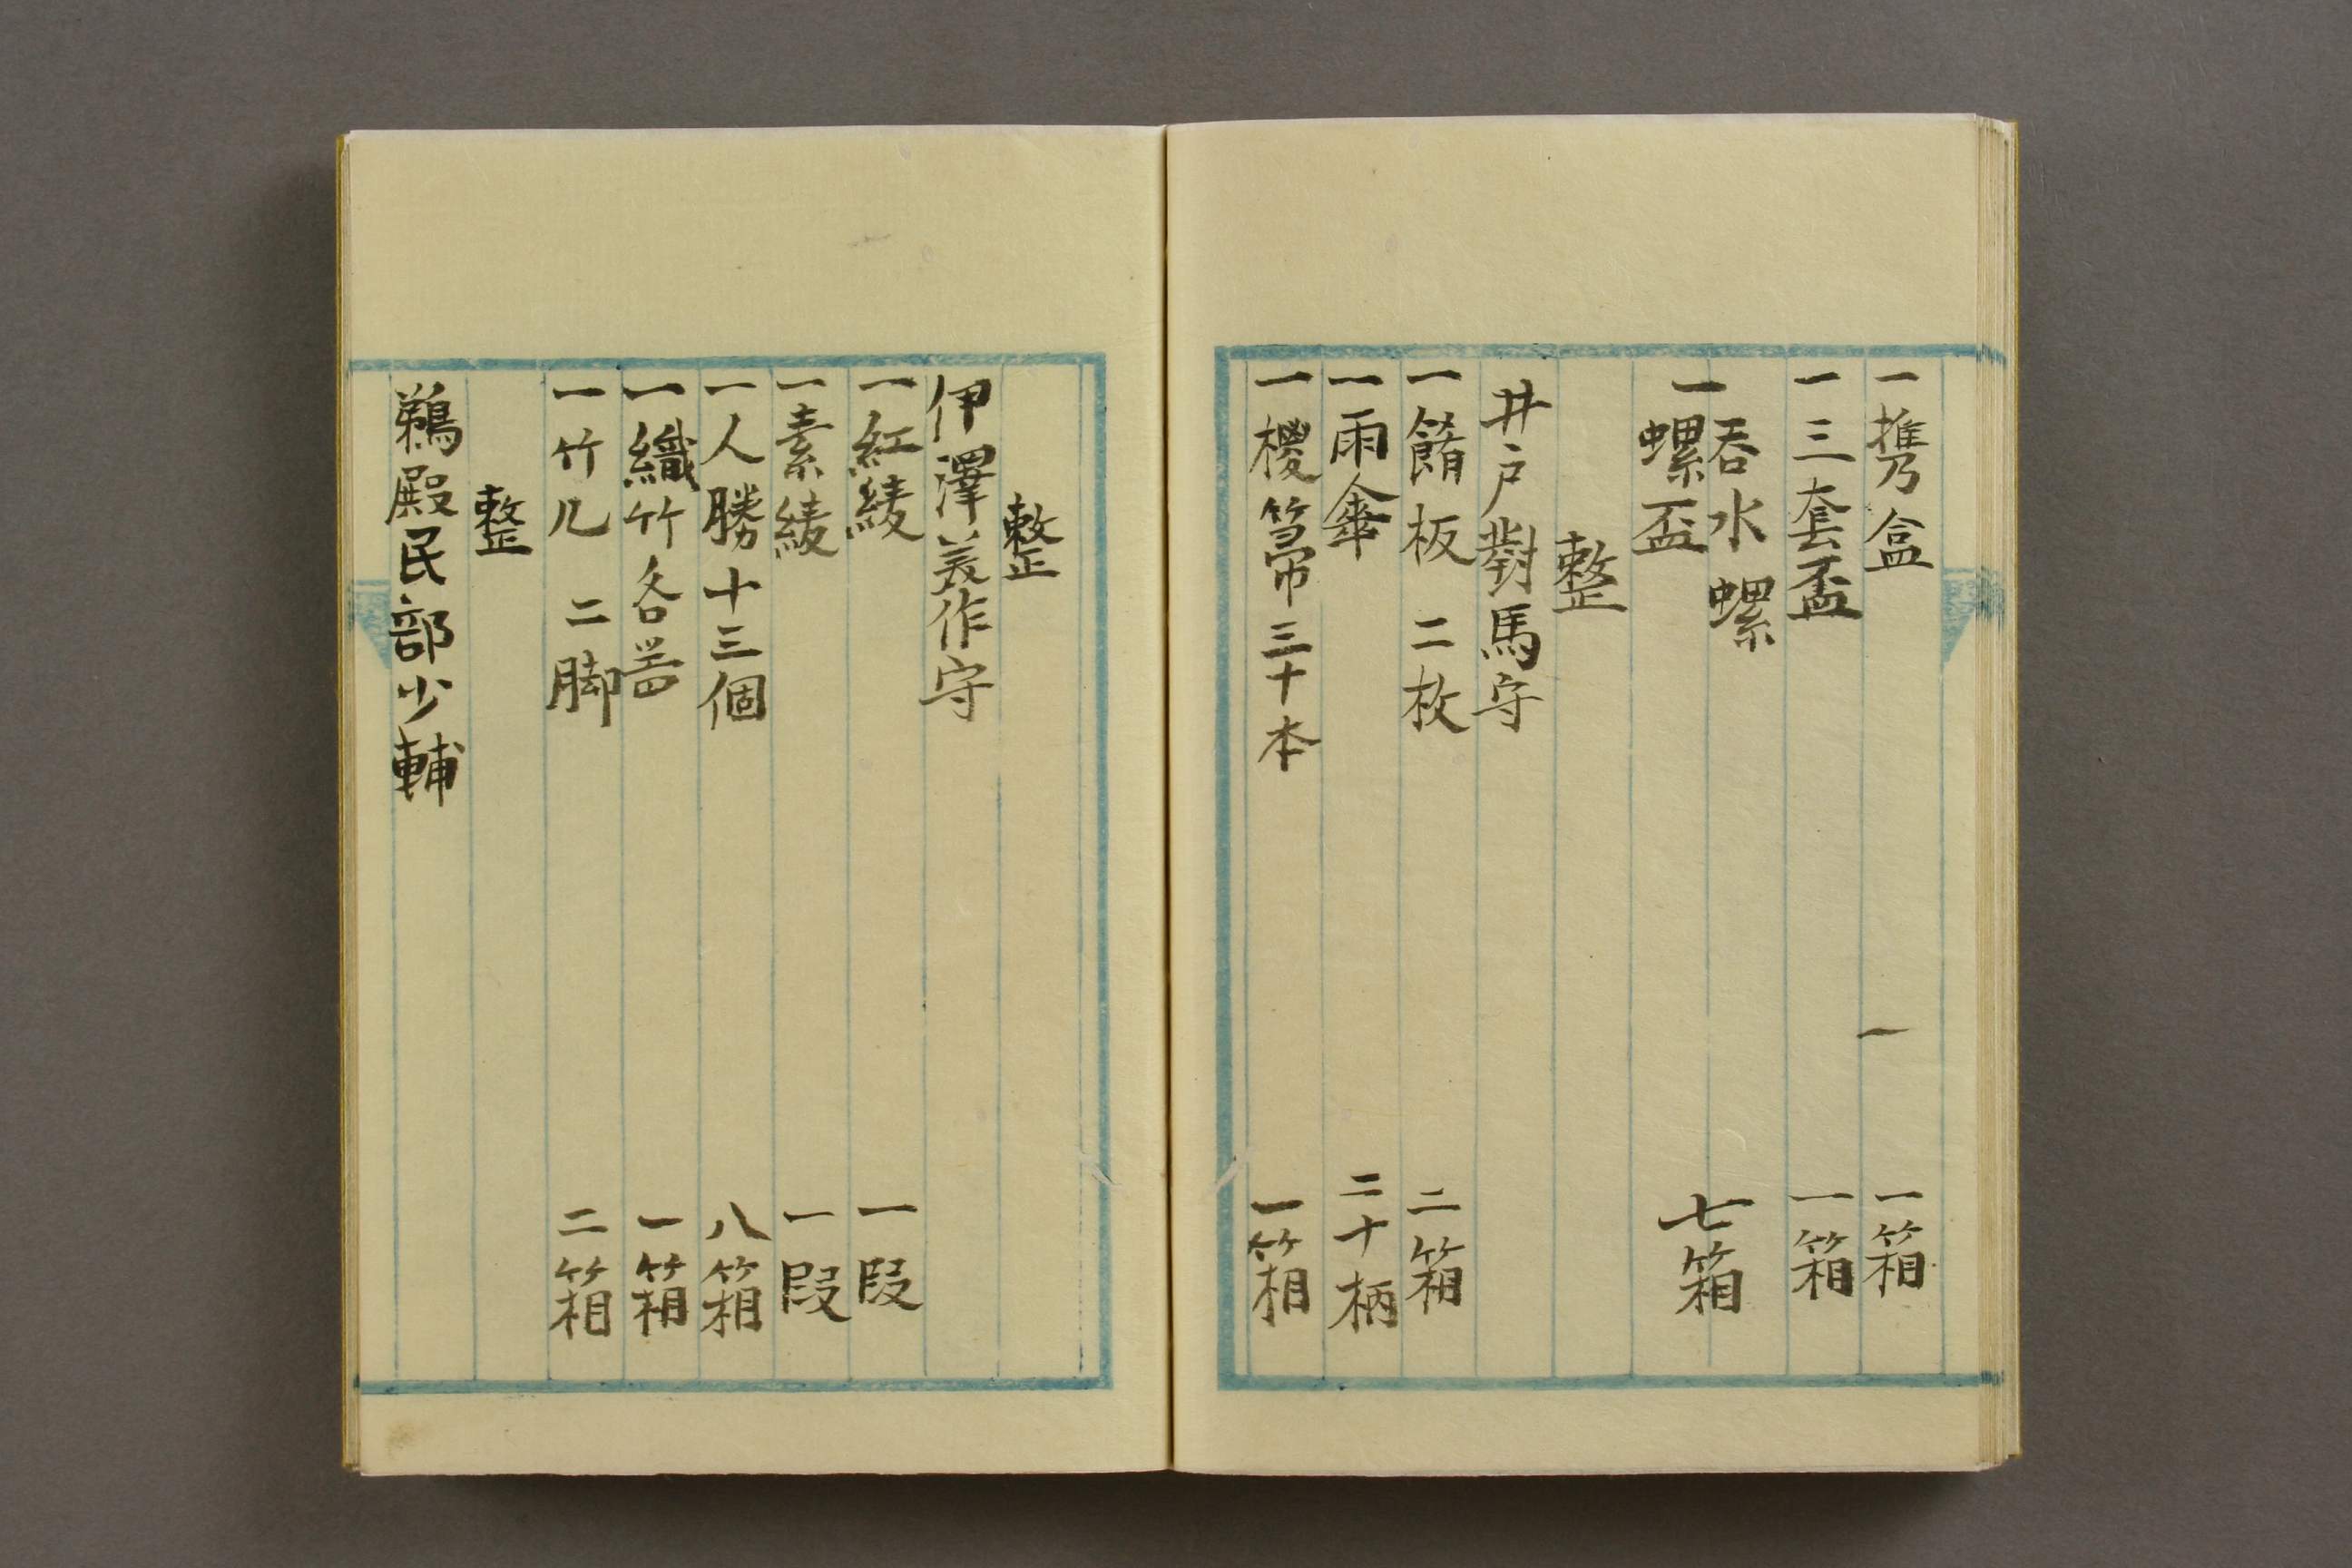 一携盒 一 一箱
一三套盃 一箱
一吞水螺
螺盃 七箱
整
井戸對馬守
一餙板 二枚 二箱
一雨傘 二十柄
一椶箒三十本 一箱
整
伊澤美作守
一紅綾 一段
一素綾 一段
一人勝十三個 八箱
一織竹各噐 一箱
一竹几 二脚 二箱
整
鵜殿民部少輔